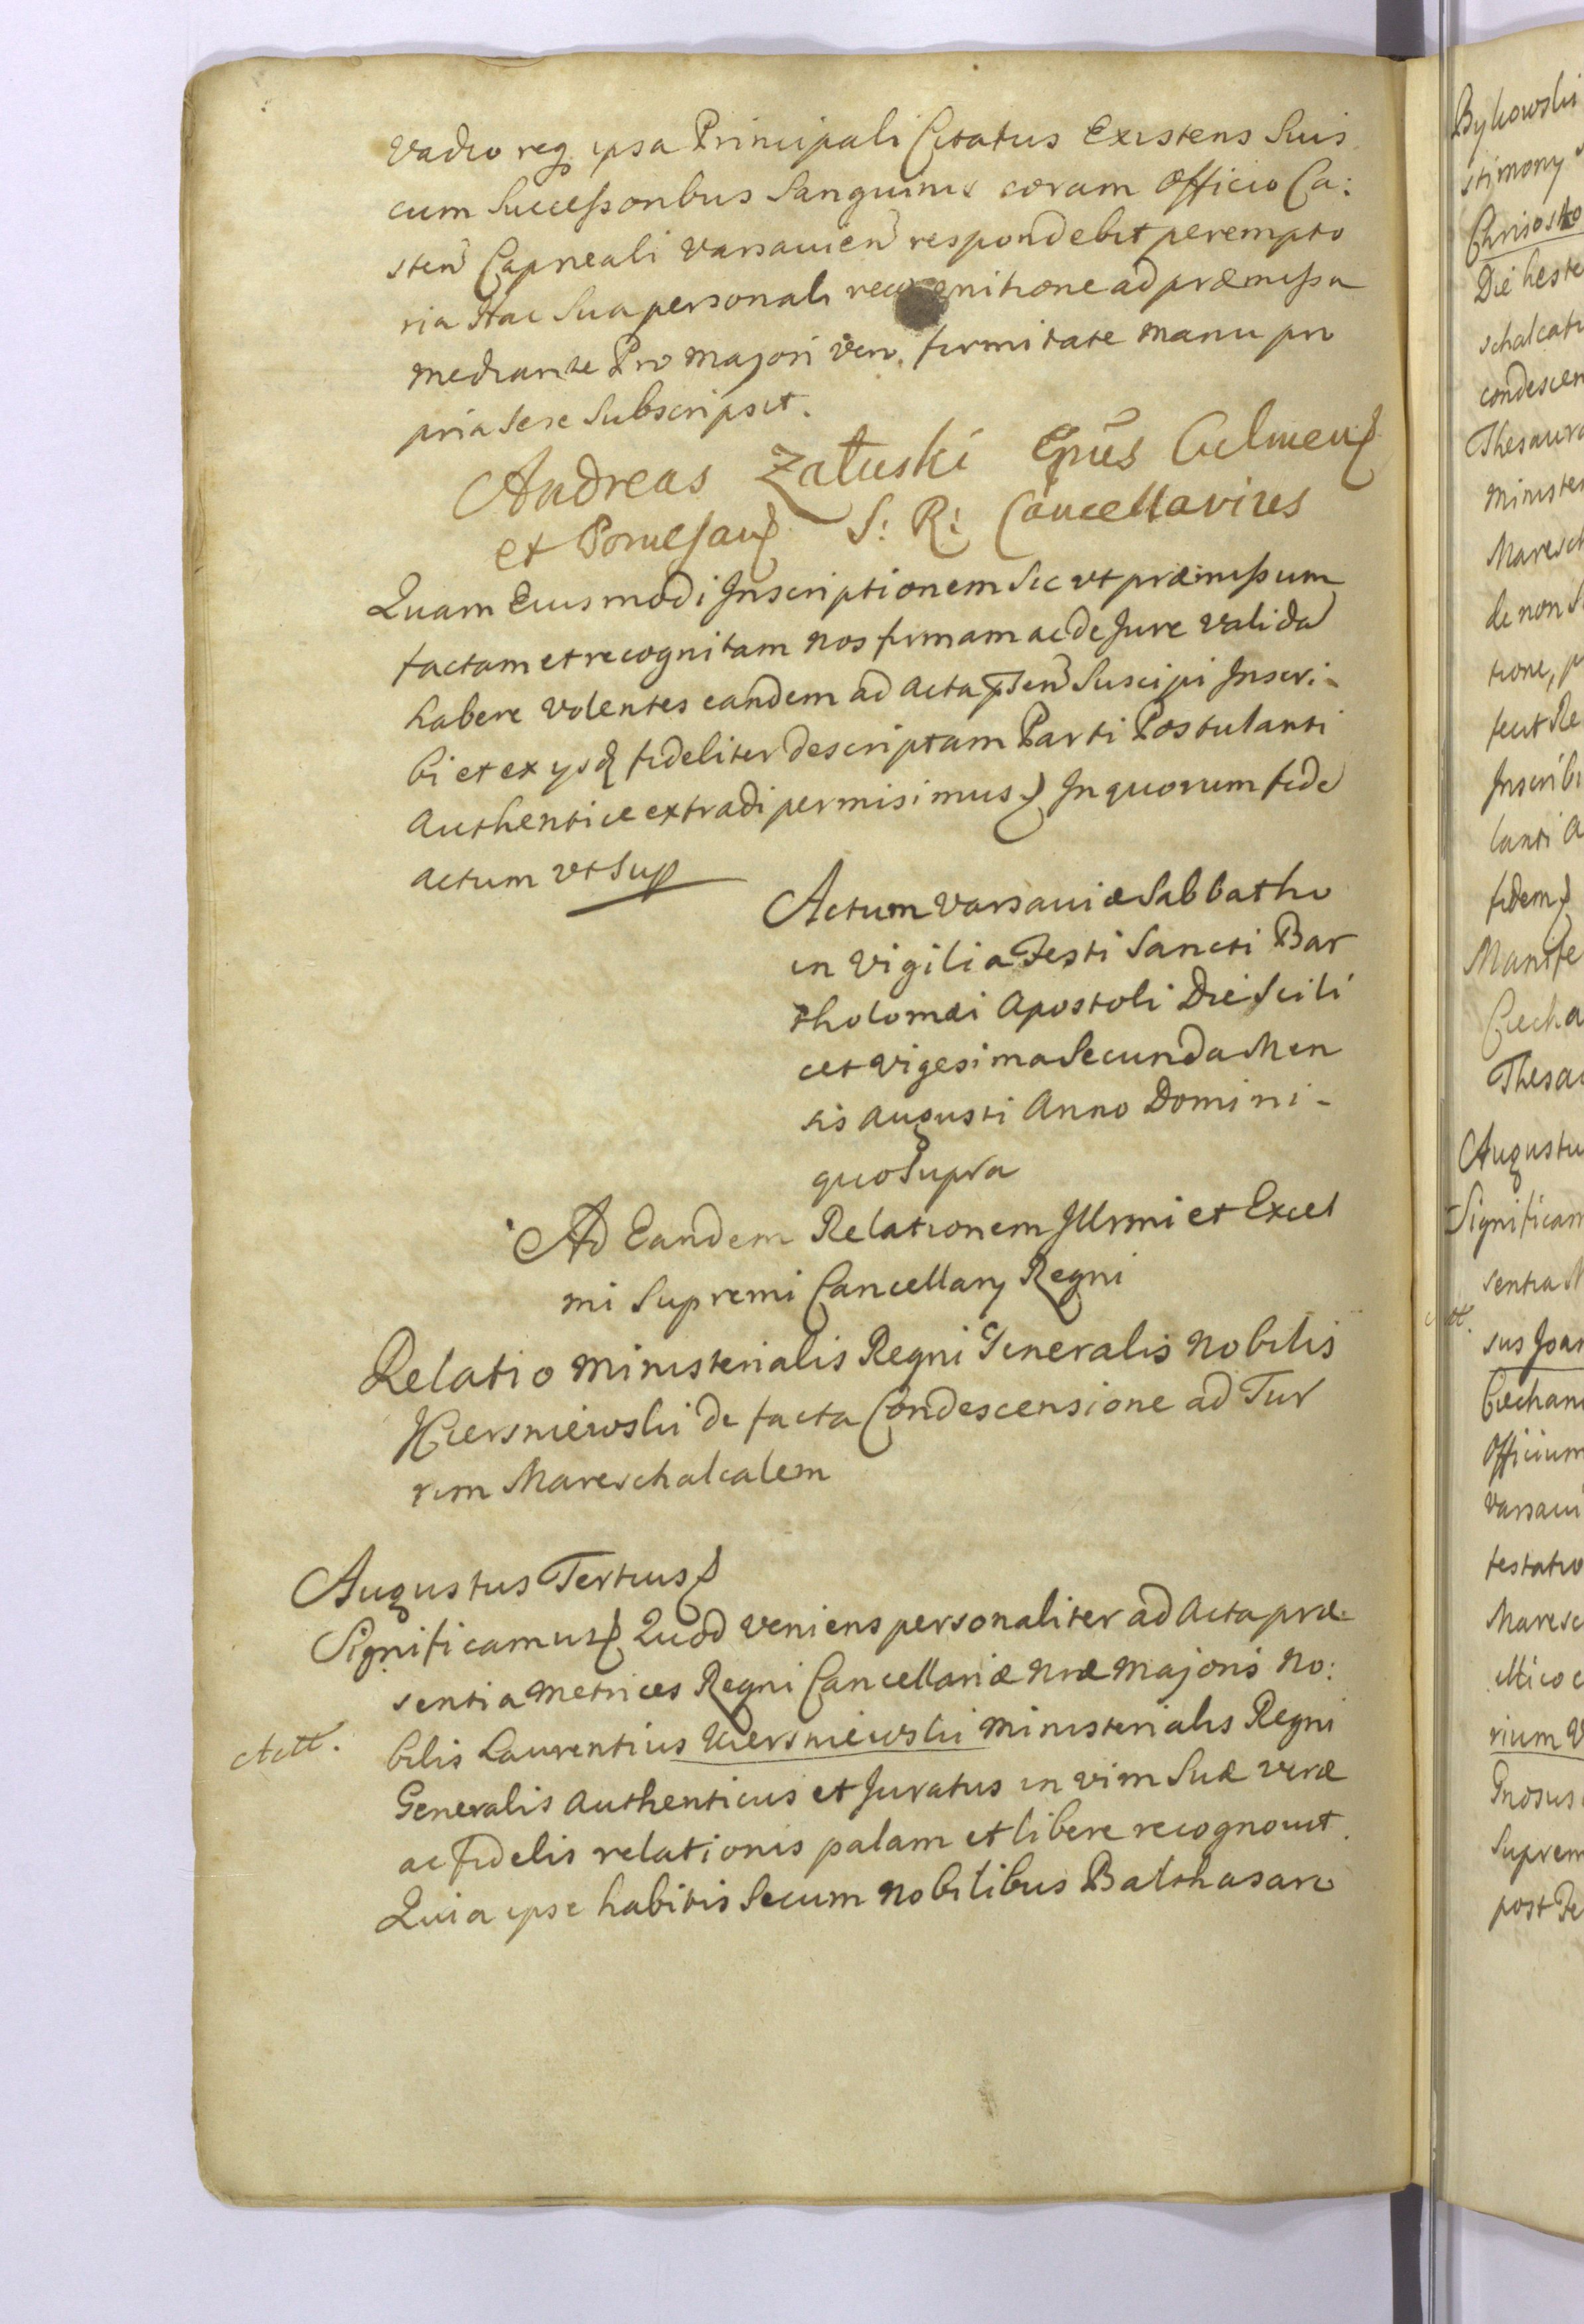 vadio req ipsa Principali Citatus Existens Suis
cum Successoribus Sanguinis coram Officio Ca:
sten Capneali Varsavien respondebit perempto
ria Hac Sua personali recognitione ad præmissa
mediante Pro majori vero firmitate manu pro
pria sese Subscripsit.
Andreas Załuski Epus Culmens
et Pomesan S: R: Cancellarius
Quam Eiusmodi Inscriptionem Sic ut præmissum
factam et recognitam nos firmam ac de Jure valida
habere volentes eandem ad acta pnsen Suscipi Inscri-
bi et ex ysd fideliter descriptam Parti Postulanti
authentice extradi permisimus In quorum fide
actum ut Sup
Actum Varsaviæ Sabbatho
in Vigilia Festi Sancti Bar
tholomæi Apostoli Die Scili
cet vigesima Secunda Men
sis augusti Anno Domini-
quo Supra
Ad Eandem Relationem Illrmi et Excel
mi Supremi Cancellary Regni
Relatio Ministerialis Regni Generalis Nobilis
Kiersniewski de facta Condescensione ad Tur
rim Mareschalcalem
Augustus Tertius
Significamus Quod veniens personaliter ad Acta præ-
sentia Metrices Regni Cancellariæ Nræ Majoris No:
bilis Laurentius Kiersniewski Ministerialis Regni
Generalis authenticus et Juratus in vim Suæ veræ
ac fidelis relationis palam et libere recognovit.
Quia ipse habitis Secum Nobilibus Balthasaro
Bykowski
stimony
Chrisosto
Die heste
schalcatu
condescen
Thesaura
minister
Maresch
de non S
tione, p
fecit Re
Inscribi
lanti a
fidem
Manife
Ciecha
Thesau
Augustu
Significam
sentia M
sus Joan
Ciechan
Officium
Varsavi
testatio
Maresc
rium V
Gnosus
Suprem
post Fe